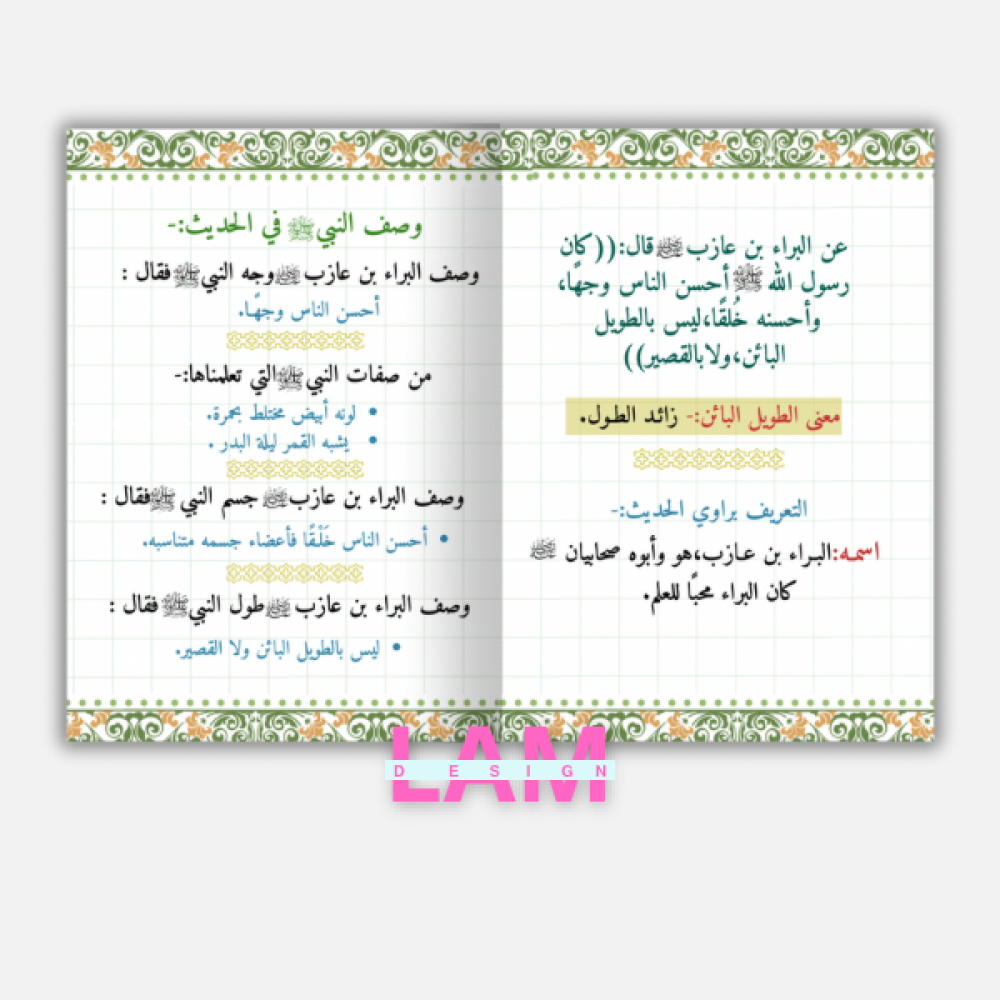 عن البراء بن عازب ﷺ قال:((كان
رسول الله ﷺ أحسن الناس وجهًا،
وأحسنه خُلقًا،ليس بالطويل
البائن،ولابالقصير))
معنى الطويل البائن:- زائد الطول.
التعريف براوي الحديث:-
اسمـه:البـراء بن عـازب،هو وأبوه صحابيان ﷺ
كان البراء محبًا للعلم.
وصف النبي ﷺ في الحديث:-
وصف البراء بن عازب ﷺ وجه النبي ﷺ فقال :
أحسن الناس وجهًـا.
من صفات النبي ﷺ التي تعلمناها:-
• لونه أبيض مختلط بحمرة.
• يشبه القمر ليلة البدر .
وصف البراء بن عازب ﷺ جسم النبي ﷺ فقال :
• أحسن الناس خَلْـقًا فأعضاء جسمه متناسبه.
وصف البراء بن عازب ﷺ طول النبي ﷺ فقال :
• ليس بالطويل البائن ولا القصير.
LAM
DESIGN